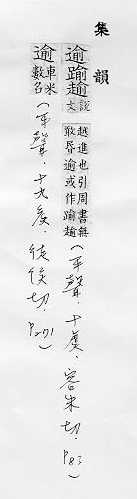 集韻
逾踰𧼯說文越進也引周書無敢昬逾或作踰𧼯(平聲,十虞,容朱切,P83)
逾車米數名(平聲,十九矦,徒矦切,P271)